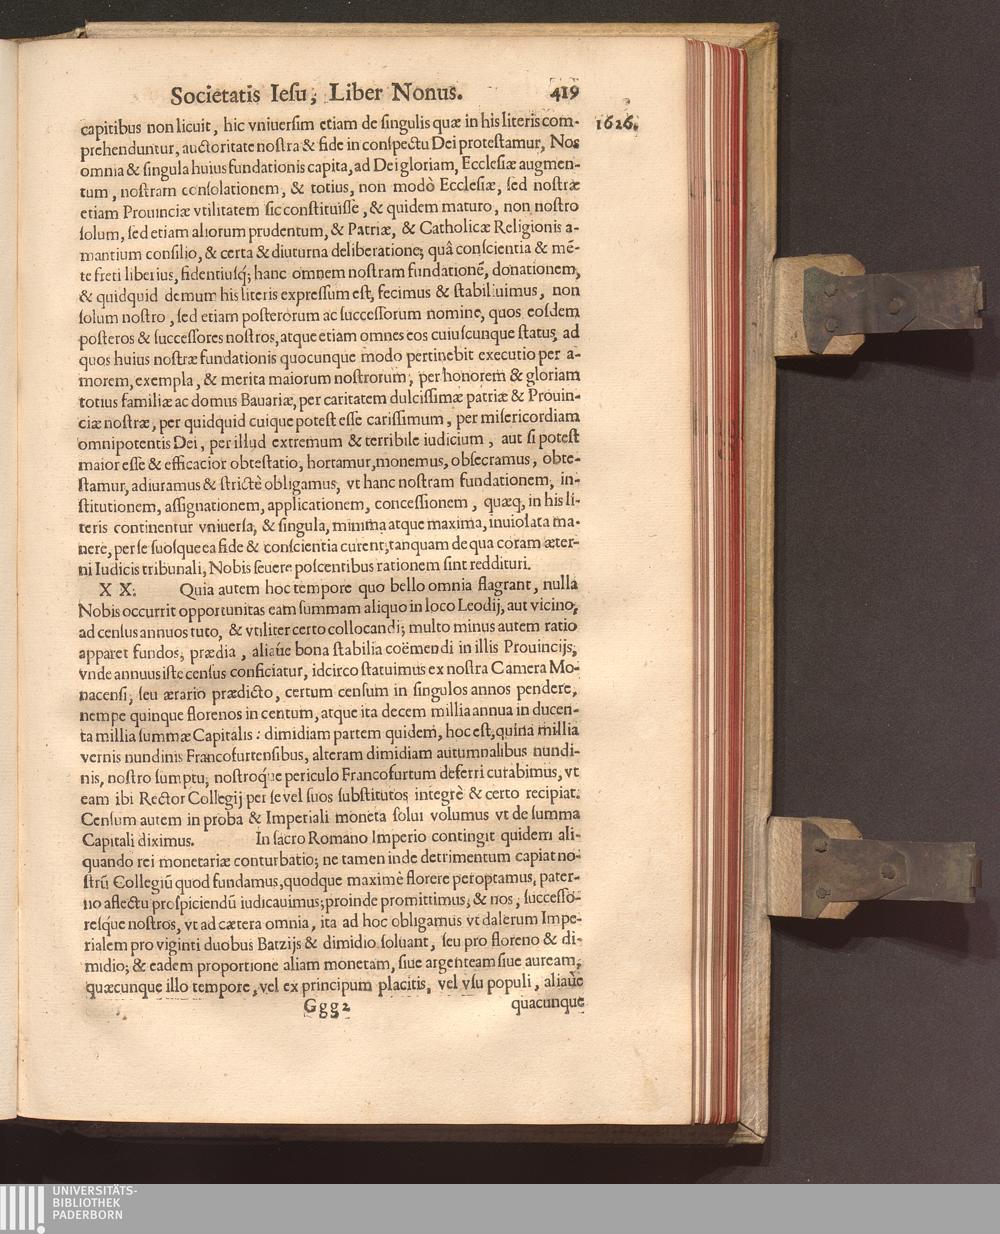 Societatis Iesu, Liber Nonus. 419
capitibus non licuit, hic vniuersim etiam de singulis quæ in his literis com- 1626.
prehenduntur, auctoritate nostra & fide in conspectu Dei protestamur, Nos
omnia & singula huius fundationis capita, ad Dei gloriam, Ecclesiæ augmen-
tum, nostram consolationem, & totius, non modò Ecclesiæ, sed nostræ
etiam Prouinciæ vtilitatem sic constituisse, & quidem maturo, non nostro
solum, sed etiam aliorum prudentum, & Patriæ, & Catholicæ Religionis a-
mantium consilio, & certa & diuturna deliberatione; quâ conscientia & mē-
te freti liberius, fidentiusq́; hanc omnem nostram fundationē, donationem,
& quidquid demum his literis expressum est, fecimus & stabiliuimus, non
solum nostro, sed etiam posterorum ac successorum nomine, quos eosdem
posteros & successores nostros, atque etiam omnes eos cuiuscunque status, ad
quos huius nostræ fundationis quocunque modo pertinebit executio per a-
morem, exempla, & merita maiorum nostrorum, per honorem & gloriam
totius familiæ ac domus Bauariæ, per caritatem dulcissimæ patriæ & Prouin-
ciæ nostræ, per quidquid cuique potest esse carissimum, per misericordiam
omnipotentis Dei, per illud extremum & terribile iudicium, aut si potest
maior esse & efficacior obtestatio, hortamur, monemus, obsecramus, obte-
stamur, adiuramus & strictè obligamus, vt hanc nostram fundationem, in-
stitutionem, assignationem, applicationem, concessionem, quæq, in his li-
teris continentur vniuersa, & singula, minima atque maxima, inuiolata ma-
nere, per se suosque ea fide & conscientia curent, tanquam de qua coram æter-
ni Iudicis tribunali, Nobis seuere poscentibus rationem sint reddituri.
XX. Quia autem hoc tempore quo bello omnia flagrant, nulla
Nobis occurrit opportunitas eam summam aliquo in loco Leodij, aut vicino,
ad census annuos tuto, & vtiliter certo collocandi; multo minus autem ratio
apparet fundos, prædia, aliaúe bona stabilia coëmendi in illis Prouincijs,
vnde annuus iste census conficiatur, idcirco statuimus ex nostra Camera Mo-
nacensi, seu ærario prædicto, certum censum in singulos annos pendere,
nempe quinque florenos in centum, atque ita decem millia annua in ducen-
ta millia summæ Capitalis: dimidiam partem quidem, hoc est, quina millia
vernis nundinis Francofurtensibus, alteram dimidiam autumnalibus nundi-
nis, nostro sumptu, nostroq́ue periculo Francofurtum deferri curabimus, vt
eam ibi Rector Collegij per se vel suos substitutos integrè & certo recipiat.
Censum autem in proba & Imperiali moneta solui volumus vt de summa
Capitali diximus. In sacro Romano Imperio contingit quidem ali-
quando rei monetariæ conturbatio; ne tamen inde detrimentum capiat no-
strū Collegiū quod fundamus, quodque maximè florere peroptamus, pater-
no affectu prospiciendū iudicauimus; proinde promittimus, & nos, successo-
resq́ue nostros, vt ad cætera omnia, ita ad hoc obligamus vt dalerum Impe-
rialem pro viginti duobus Batzijs & dimidio soluant, seu pro floreno & di-
midio; & eadem proportione aliam monetam, siue argenteam siue auream,
quæcunque illo tempore, vel ex principum placitis, vel vsu populi, aliaúe
Ggg 2 quacunque
UNIVERSITÄTS-
BIBLIOTHEK
PADERBORN